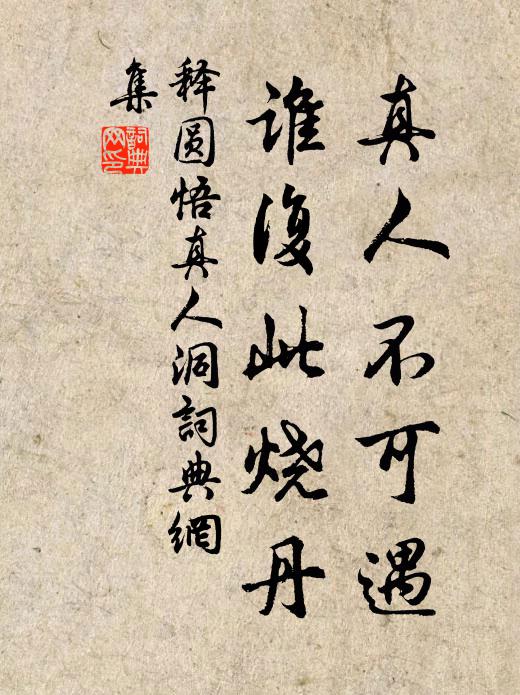 真人不可遇
谁復此烧丹
释圆悟真人洞詞典網
集
詞典
网印